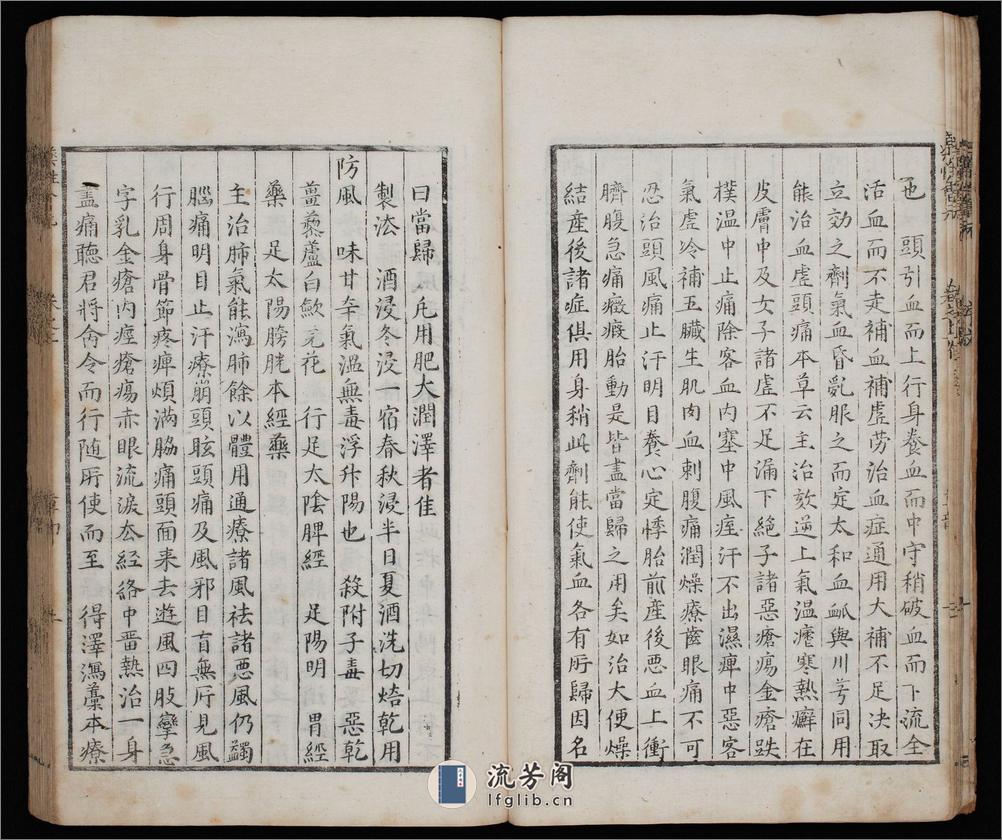 也　頭引血而上行身養血而中守稍破血而下流全
活血而不走補血補虛劳治血症通用大補不足决取
立効之劑氣血昏亂服之而定太和血衇與川芎同用
能治血虛頭痛本草云主治欬逆上氣温瘧寒熱癬在
皮膚中及女子諸虛不足漏下絶子諸惡瘡瘍金瘡跌
樸温中止痛除客血内塞中風痓汗不出濕痺中惡客
氣虛冷補五臟生肌肉血刺腹痛潤燥療齒眼痛不可
忍治頭風痛止汗明目養心定悸胎前産後悪血上衝
臍腹急痛癥瘕胎動是皆盡當歸之用矣如治大便燥
結産後諸症俱用身稍此劑能使氣血各有所歸因名
曰當歸　凡用肥大潤澤者佳
製法　酒浸冬浸一宿春秋浸半日夏酒洗切焙乾用
防風　味甘辛氣温無毒浮升陽也　殺附子毒　惡乾
薑藜蘆白歛芫花　行足太陰脾經　足陽明　胃經
藥　足太陽膀胱本經藥
主治肺氣能瀉肺餘以體用通療諸風祛諸悪風仍蠲
腦痛明目止汗療崩頭眩頭痛及風邪目盲無所見風
行周身骨節疼痺煩滿脇痛頭面来去遊風四肢攣急
字乳金瘡内痙瘡瘍赤眼流淚厺經絡中畱熱治一身
盡痛聴君將命令而行随所使而至　得澤瀉藁本療
流芳阁
lfglib.cn